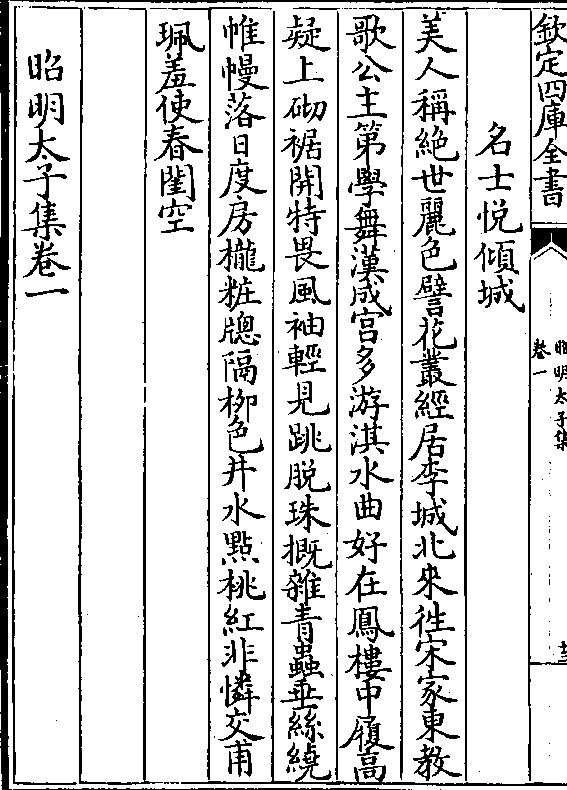 欽定四庫全書
昭明太子集
卷一
十三
名士悅傾城
美人稱絶世麗色譬花叢經居李城北來徃宋家東教
歌公主第學舞漢成宫多游淇水曲好在鳳樓中履高
疑上砌裾開特畏風袖輕見跳脱珠概雜青蟲垂絲繞
帷幔落日度房櫳粧牕隔栁色井水㸃桃紅非憐交甫
珮羞使春閨空
昭明太子集卷一